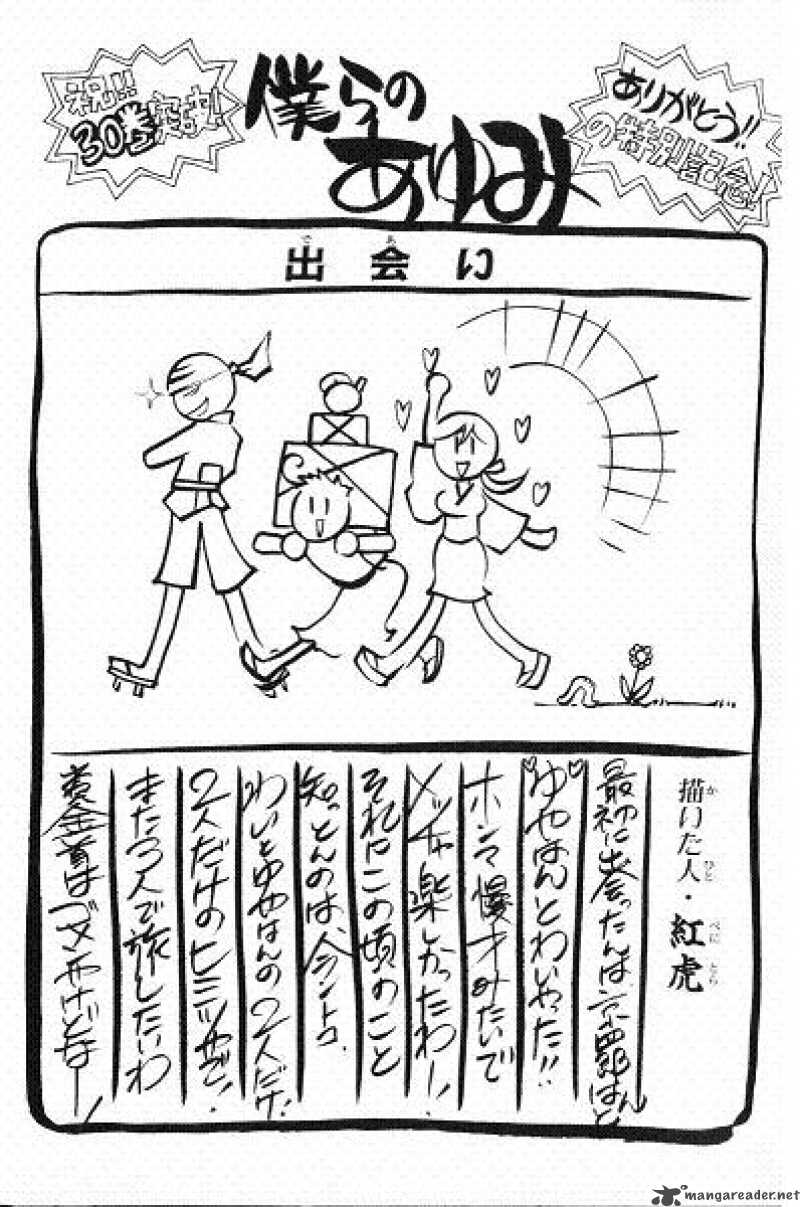 祝!!
30巻突破!
僕らの
あゆみ
ありがとう!!
の特別記念!!
出会い
描いた人・紅虎
最初に出会ったんは、京四郎はんと
ゆやはんとわいやった!!
ホンマ漫才みたいで
メッチャ楽しかったわー!
それにこの頃のこと
知っとんのは、今んトコ、
わいとゆやはんの2人だけ!
2人だけのヒミツやで!
また3人で旅したいわ
賞金首はゴメンやけどなー!
mangareader.net